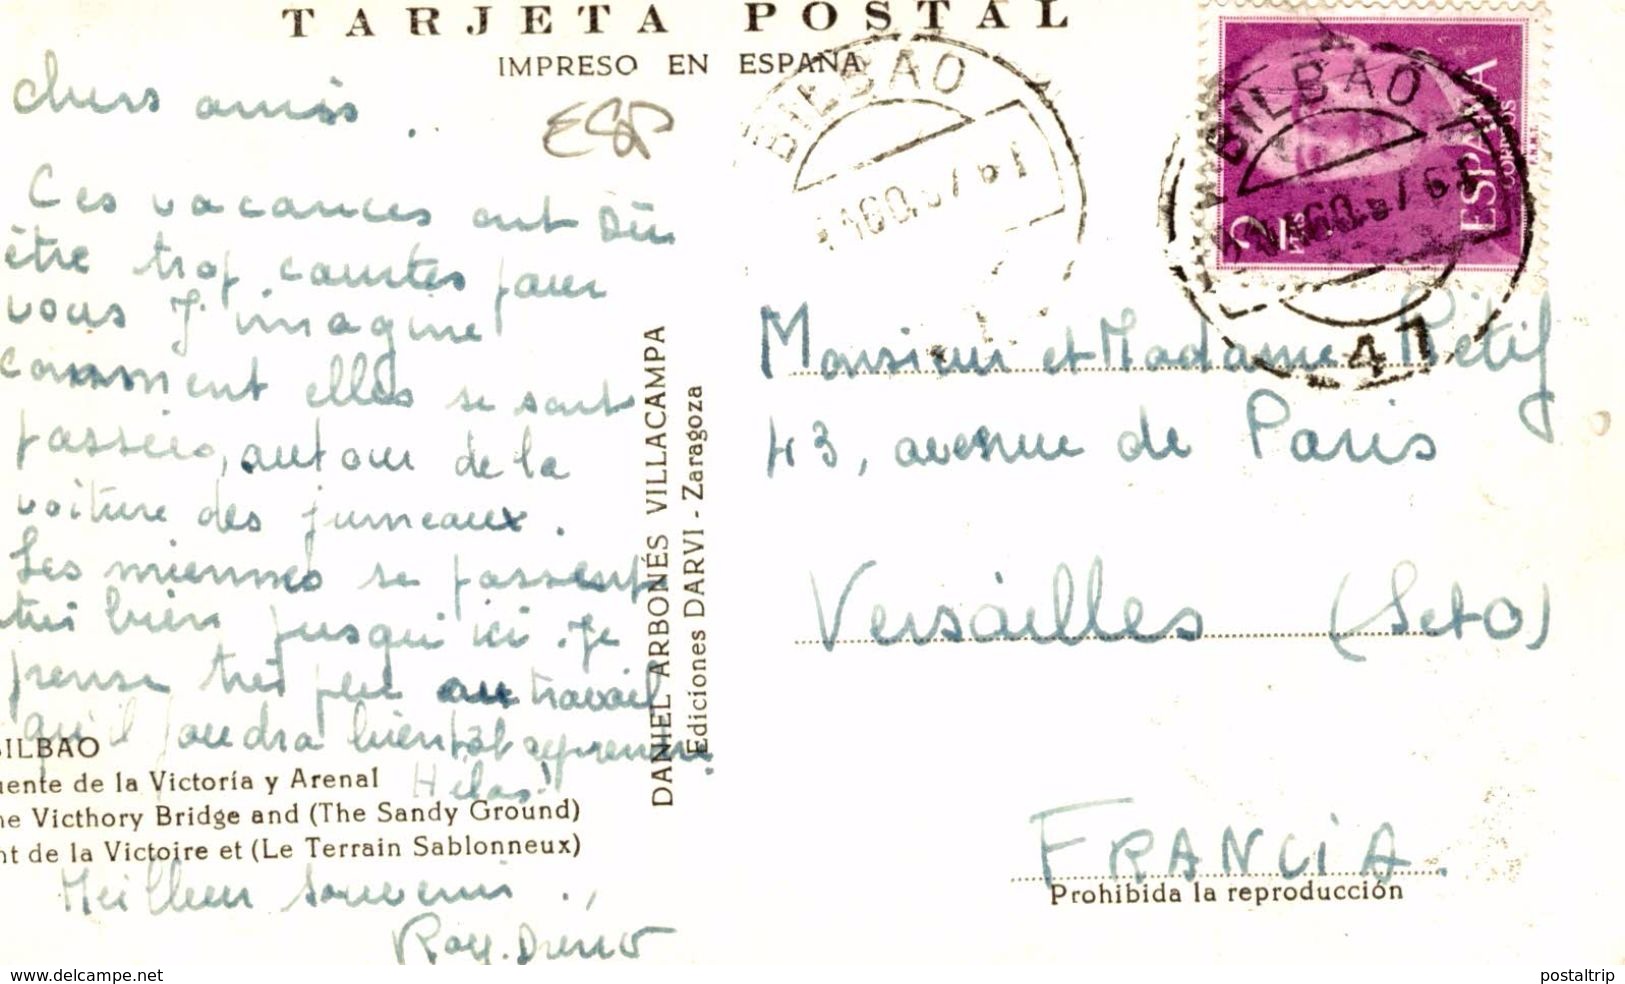 TARJETA POSTAL
IMPRESO EN ESPAÑA
ESP
chers amis.
Ces vacances ont Dû
être trop courtes pour
vous J'imagine
comment elles se sont
passées, autour de la
voiture des jumeaux.
Les miennes se passent
très bien jusqu'ici. Je
pense très peu au travail
qu'il faudra bientôt reprendre.
Hélas!
BILBAO
uente de la Victoria y Arenal
ne Victhory Bridge and (The Sandy Ground)
nt de la Victoire et (Le Terrain Sablonneux)
Meilleur souvenir.
DANIEL ARBONÉS VILLACAMPA
Ediciones DARVI - Zaragoza
BILBAO
BILBAO
41
2
PTS
ESPAÑA
CORREOS
F.N.M.T.
Monsieur et Madame Rétif
43, avenue de Paris
Versailles (Set0)
FRANCIA.
Prohibida la reproducción
www.delcampe.net
postaltrip